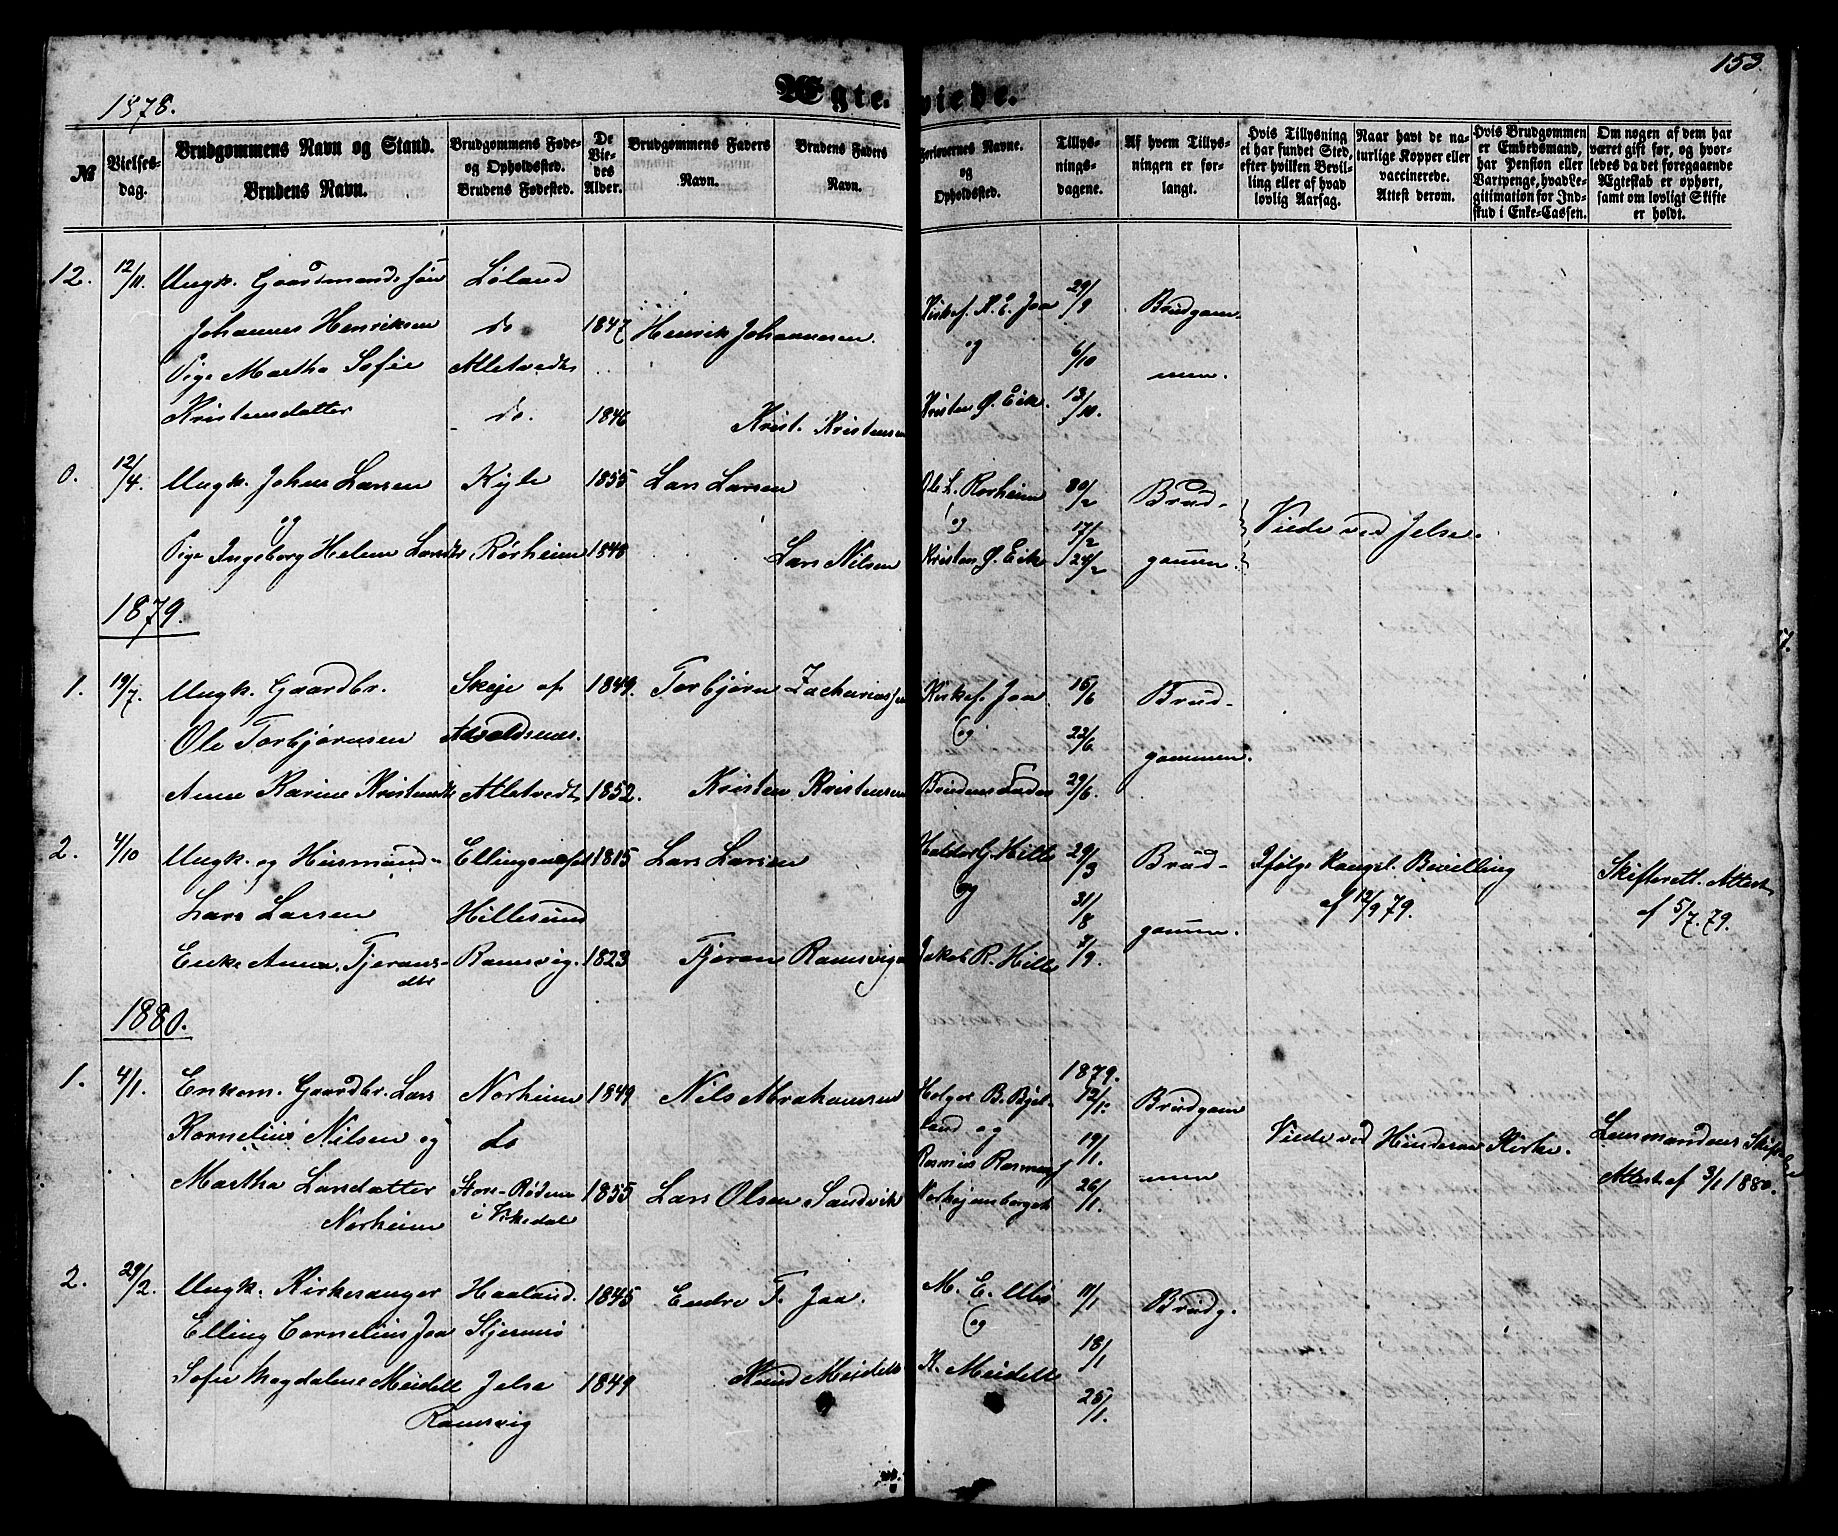 153.
1878.
Ægteviede.
№
Vielsesdag.
Brudgommens Navn og Stand.
Brudens Navn.
Brudgommens Føde-
og Opholdssted.
Brudens Fødested.
De
Vie-
des
Alder.
Brudgommens Faders
Navn.
Brudens Faders
Navn.
Forlovernes Navne.
og
Opholdssted.
Tillys-
nings-
dagene.
Af hvem Tillys-
ningen er for-
langt.
Hvis Tillysning
ei har fundet Sted,
efter hvilken Bevil-
ling eller af hvad
lovlig Aarsag.
Naar havt de na-
turlige Kopper eller
vaccinerede.
Attest derom.
Hvis Brudgommen
er Embedsmand,
har Pension eller
Vartpenge, hvad Le-
gitimation for Ind-
skud i Enke-Cassen.
Om nogen af dem har
været gift før, og hvor-
ledes da det foregaaende
Ægteskab er ophørt,
samt om lovligt Skifte
er holdt.
12. 12/11. Ungk. Gaardmandssøn Løland 29/9
Johannes Henriksen do 1847 Henrik Johannesen. Kirkes. A. E. Jaa Brudgom-
Pige Martha Sofie Alletvedt og 6/10 men.
Kristensdatter do. 1846 Krist. Kristensen Kristen Ø. Eik. 13/10.
0. 12/4. Ungk. Johan Larsen Kyle 1855 Lars Larsen Ole L. Rorheim /2 Brud-
og og 17/2 Viede ved Jelse.
Pige Ingeborg Helene Larsdtr Rørheim 1848 Lars Nilsen Kristen Ø. Eik 24/2 gommen.
1879.
1. 19/7. Ungk. Gaardbr. Skeje af 1849. Torbjørn Zachariassen Kirkes. Jaa 15/6 Brud-
Ole Torbjørnsen Avaldsnes. og 22/6
Anne Karine Kristensdtr Alletvedt 1852. Kristen Kristensen Brudens Fader 29/6. gommen.
2. 4/10 Ungk. og Husmand- Ellingsnesset 1815 Lars Larsen Haldor G. Hille 29/3 Brud- Ifølge Kongel. Bevilling Skifterett. Attest
Lars Larsen Hillesund og 31/8 gommen. af 12/9 79. af 5/7.79.
Enke Anna Tjerans- Ramsvig. 1823 Tjeran Ramsvig Jakob R. Hille 7/9.
dtr
1880.
1879.
1. 4/1. Enkem. Gaardbr. Lars Norheim 1849 Nils Abrahamsen Holger B. Bjel- 12/1 Brudgom
Kornelius Nilsen og do land og 19/1. Viede ved Hinderaa Kirke. Lensmandens Skifte
Martha Larsdatter Store-Røden 1855 Lars Olsen Sandvik Rasmus Rasmussen 26/1. men Attest af 3/1 1880.
Norheim i Vikedal
2. 29/2. Ungk. Kirkesanger Haaland. 1845 Endre T. Jaa. M. E. 11/1 Brudg.
Elling Cornelius Jaa Stjernrø og 18/1
Sofie Magdalene Meidell Jelse 1849 Knud Meidell K. Meidell 25/1.
Ramsvig